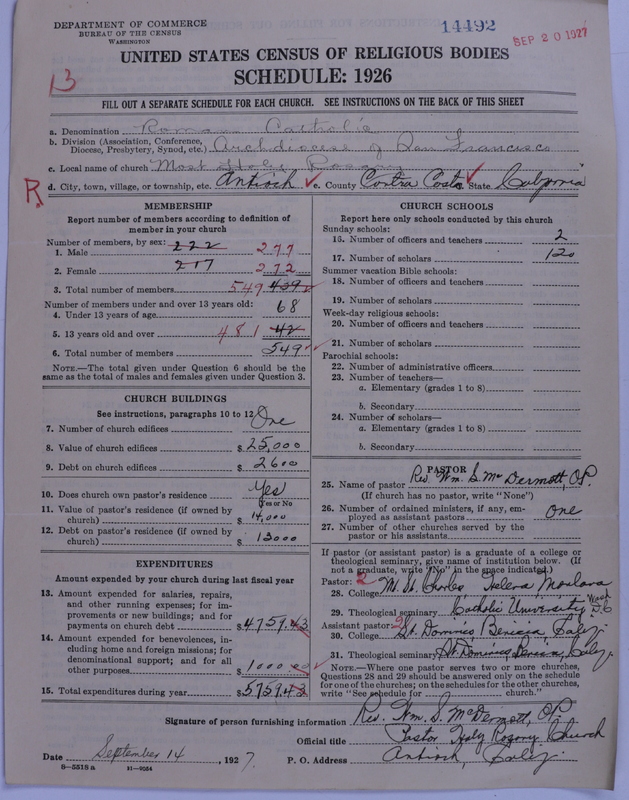 DEPARTMENT OF COMMERCE
BUREAU OF THE CENSUS
WASHINGTON
14492
SEP 20 1927
UNITED STATES CENSUS OF RELIGIOUS BODIES
SCHEDULE: 1926
13
FILL OUT A SEPARATE SCHEDULE FOR EACH CHURCH. SEE INSTRUCTIONS ON THE BACK OF THIS SHEET
a. Denomination Roman Catholic
b. Division (Association, Conference, Diocese, Presbytery, Synod, etc.) Archdiocese of San Francisco
c. Local name of church Most Holy Rosary
R d. City, town, village, or township, etc. Antioch e. County Contra Costa State California
MEMBERSHIP
Report number of members according to definition of
member in your church
Number of members, by sex:
1. Male 222 277
2. Female 217 272
3. Total number of members 549 439
Number of members under and over 13 years old:
4. Under 13 years of age 68
5. 13 years old and over 481 42
6. Total number of members 549
NOTE.—The total given under Question 6 should be
same as the total of males and females given under Question 3.
CHURCH BUILDINGS
See instructions, paragraphs 10 to 12
7. Number of church edifices One
8. Value of church edifices $ 25,000
9. Debt on church edifices $ 2600
10. Does church own pastor's residence Yes
Yes or No
11. Value of pastor's residence (if owned by
church) $ 14,000
12. Debt on pastor's residence (if owned by
church) $ 13000
EXPENDITURES
Amount expended by your church during last fiscal year
13. Amount expended for salaries, repairs,
and other running expenses; for im-
provements or new buildings; and for
payments on church debt $ 4757.43
14. Amount expended for benevolences, in-
cluding home and foreign missions; for
denominational support; and for all
other purposes $ 1000 00
15. Total expenditures during year $ 5757.43
CHURCH SCHOOLS
Report here only schools conducted by this church
Sunday schools:
16. Number of officers and teachers 2
17. Number of scholars 120
Summer vacation Bible schools:
18. Number of officers and teachers
19. Number of scholars
Week-day religious schools:
20. Number of officers and teachers
21. Number of scholars
Parochial schools:
22. Number of administrative officers
23. Number of teachers—
a. Elementary (grades 1 to 8)
b. Secondary
24. Number of scholars—
a. Elementary (grades 1 to 8)
b. Secondary
PASTOR
25. Name of pastor Rev. Wm. S. McDermott, O.P.
(If church has no pastor, write "None")
26. Number of ordained ministers, if any, em-
ployed as assistant pastors One
27. Number of other churches served by the
pastor or his assistants
If pastor (or assistant pastor) is a graduate of a college or
theological seminary, give name of institution below. (If
not a graduate, write "No" in the space indicated)
Pastor: 2
28. College Mt. St. Charles, Helena, Montana
29. Theological seminary Catholic University Wash D.C
Assistant pastor: 2
30. College St. Dominic Benicia, Calif.
31. Theological seminary St. Dominics Benicia, Calif.
NOTE.—Where one pastor serves two or more churches,
Questions 28 and 29 should be answered only on the schedule
for one of the churches; on the schedules for the other churches,
write "See schedule for church."
Signature of person furnishing information Rev. Wm. S. McDermott, O.P.
Official title Pastor Holy Rosary Church
Date September 14, 1927. P. O. Address Antioch, Calif.
8—5518 a 11—9034